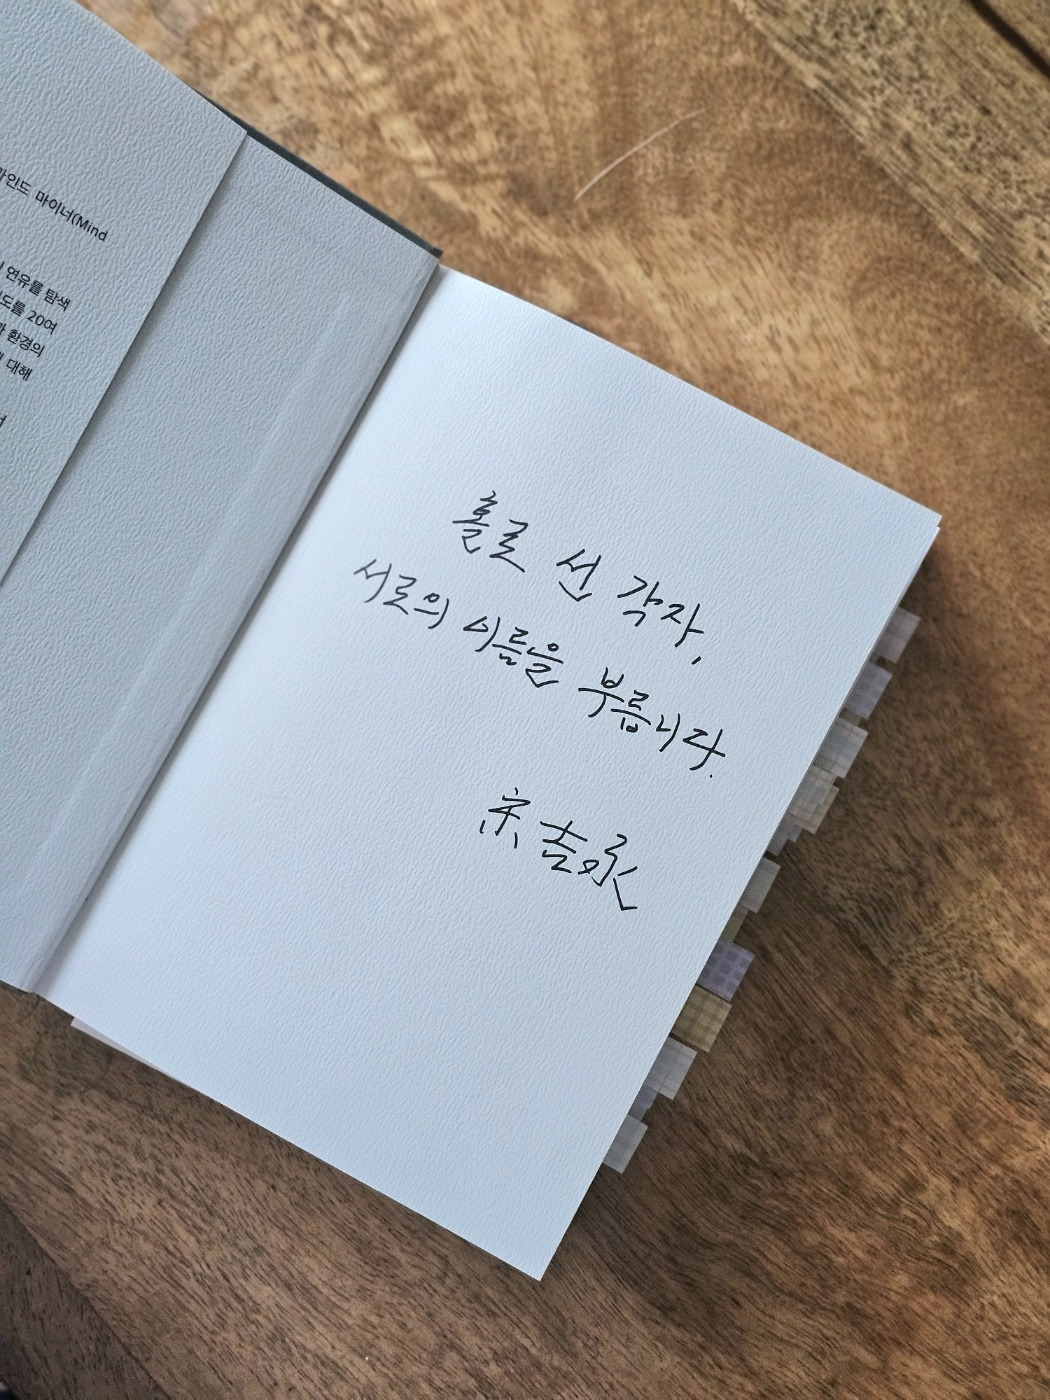 마인드 마이너(Mind
연유를 탐색
도를 20여
환경의
대해
홀로 선 각자,
서로의 이름을 부릅니다.
宋吉永